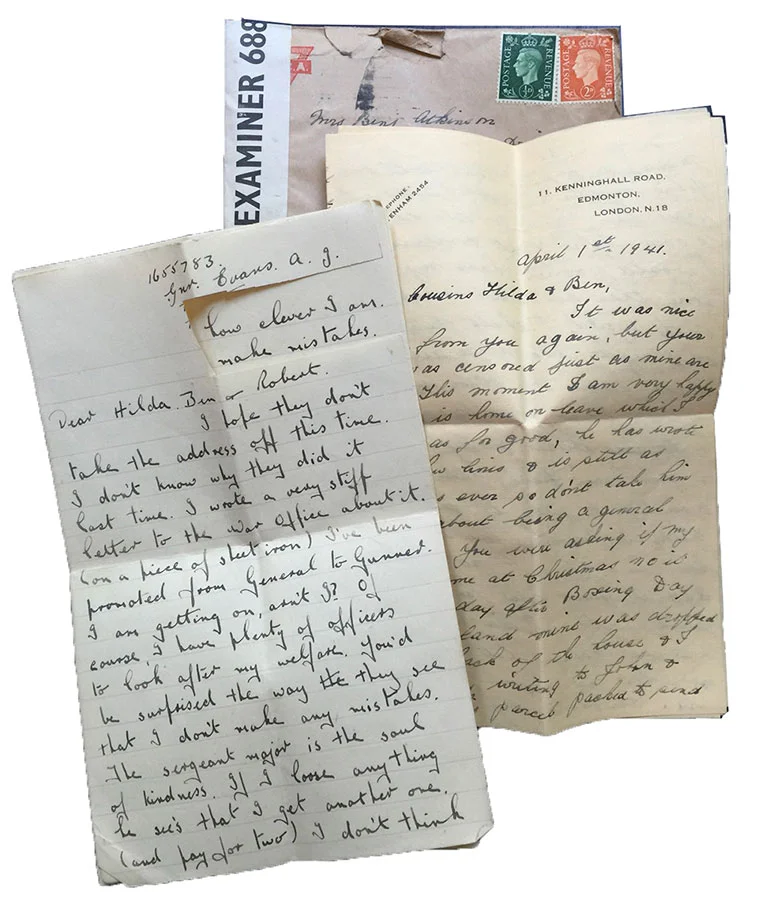 EXAMINER 688
A.
POSTAGE REVENUE
½D
POSTAGE REVENUE
2D
Mrs Benj Atkinson
TELEPHONE.
TOTTENHAM 2464
11, KENNINGHALL ROAD,
EDMONTON,
LONDON, N.18
April 1st 1941.
Cousins Hilda & Ben,
It was nice
from you again, but your
as censored just as mine are
This moment I am very happy
is home on leave which I
as for good, he has wrote
lines & is still as
ever so dont take him
about being a general
You were asking if my
me at Christmas no it
day after Boxing Day
land mine was dropped
back of the house & I
writing to John &
parcel packed to send
1655783.
Gnr. Evans. A. J.
how clever I am.
make mistakes.
Dear Hilda. Ben & Robert.
I hope they don't
take the address off this time.
I don't know why they did it
last time. I wrote a very stiff
letter to the War Office about it.
(on a piece of sheet iron) I've been
promoted from General to Gunner.
I am getting on, arn't I? Of
course, I have plenty of officers
to look after my welfare. You'd
be surprised the way the they see
that I don't make any mistakes.
The sergeant major is the soul
of kindness. If I loose anything
he see's that I get another one.
(and pay for two) I don't think